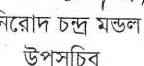 নিরোদ চন্দ্র মন্ডল
উপসচিব